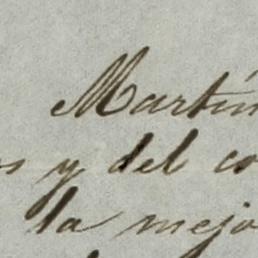 Martín
s y del co
la mejo